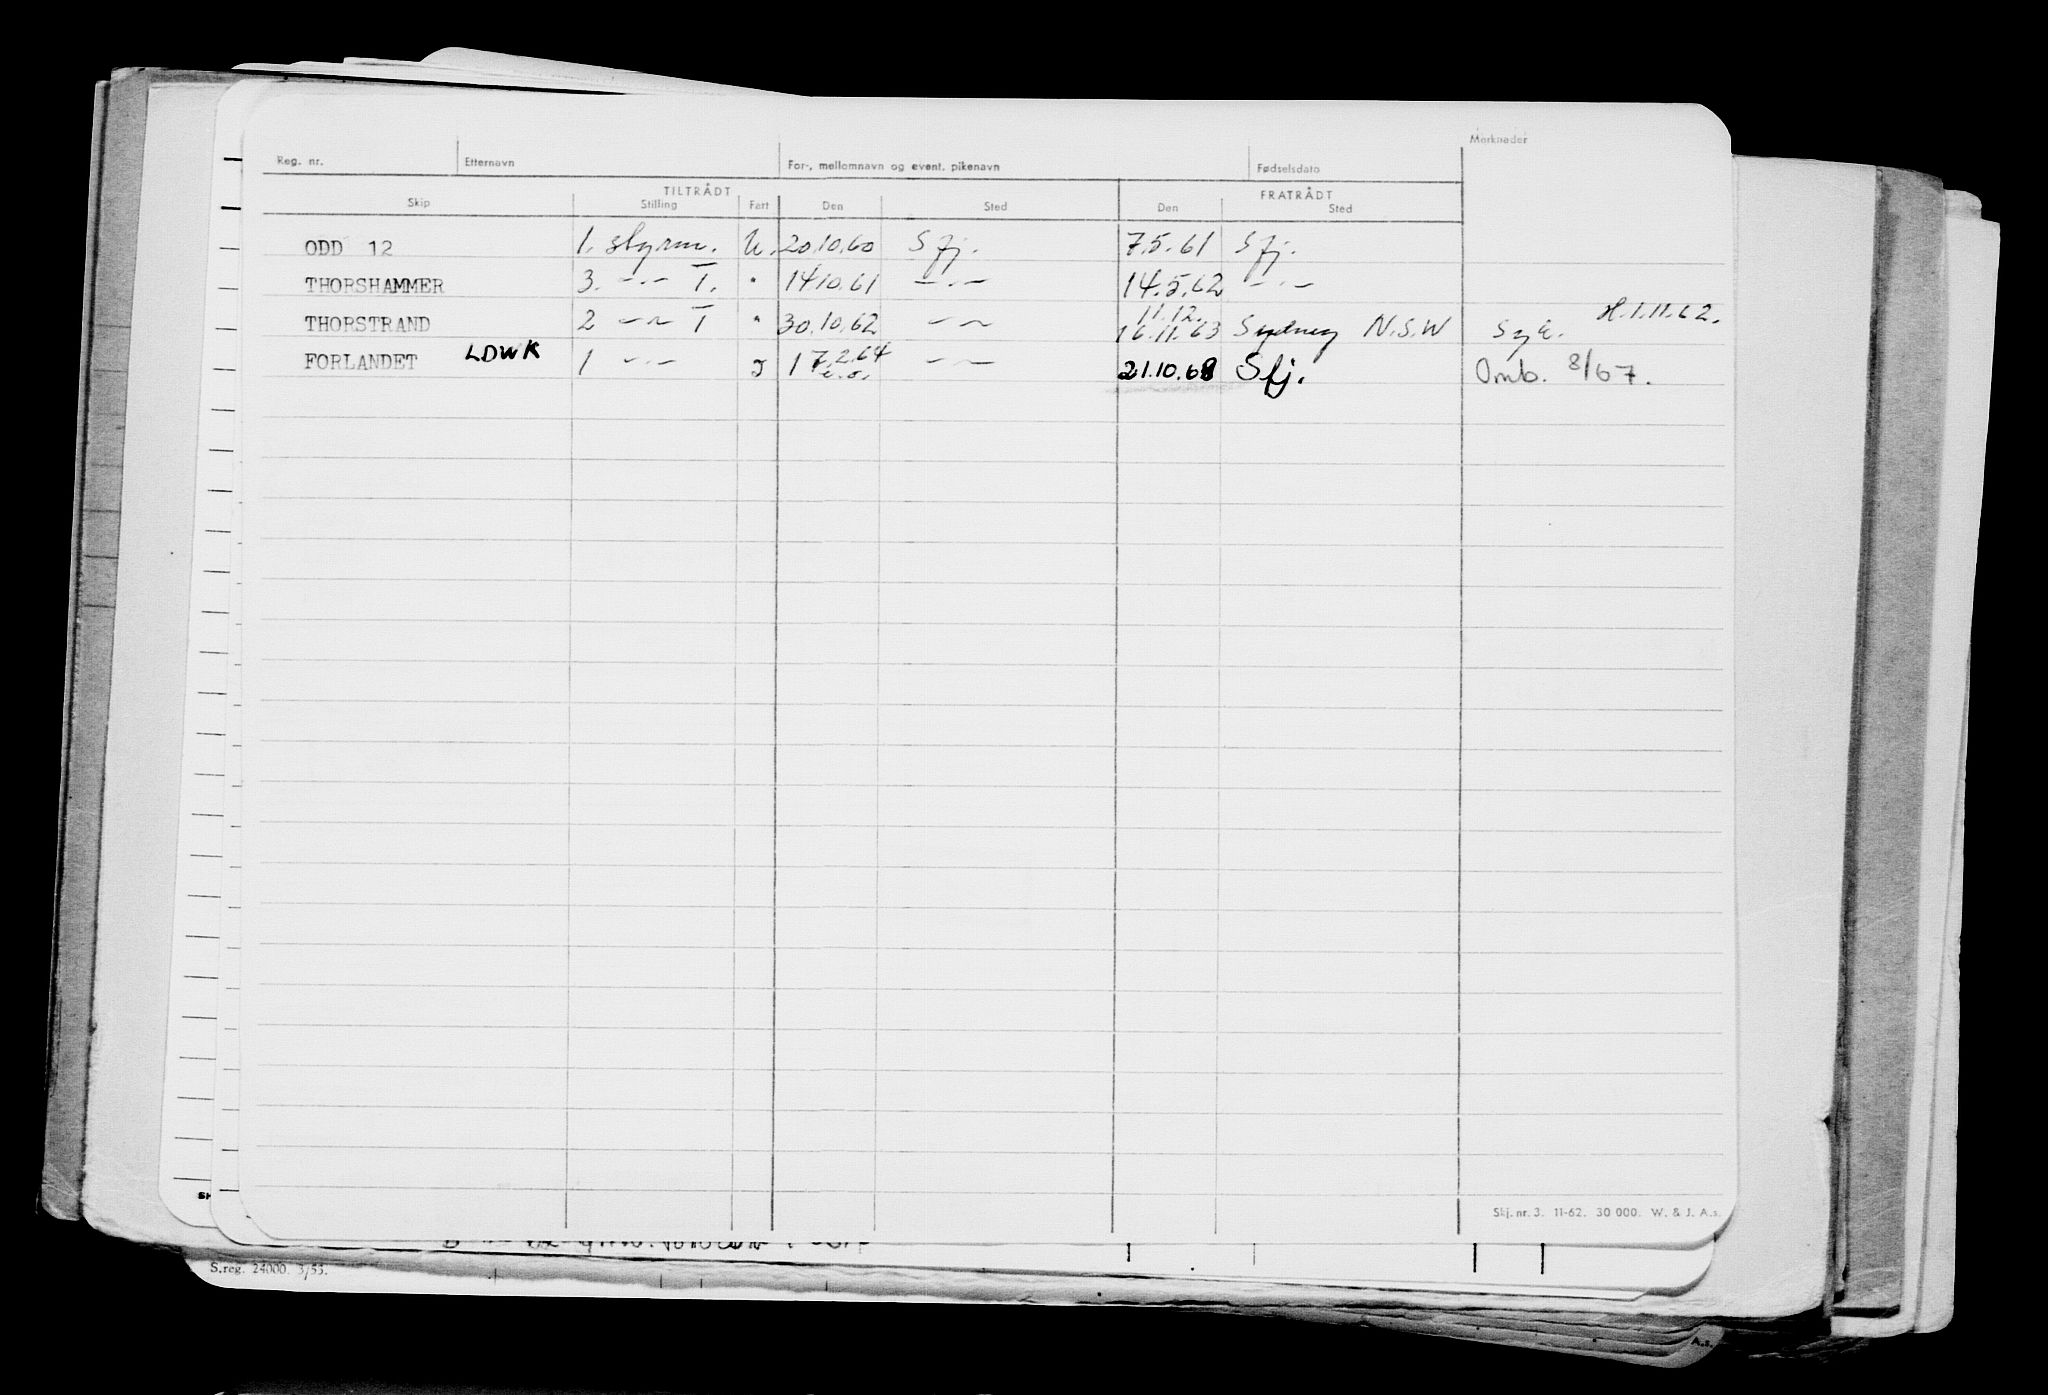 Merknader
Reg. nr. Etternavn For-, mellomnavn og event. pikenavn Fødselsdato
TILTRÅDT FRATRÅDT
Skip Stilling Fart Den Sted Den Sted
ODD 12 1. styrm. U. 20.10.60 Sfj. 7.5.61 Sfj.
THORSHAMMER 3. -"- T. " 14.10.61 -"- 14.5.62 -"-
11.12. H.1.11.62.
THORSTRAND 2 -"- T " 30.10.62 -"- 16.11.63 Sydney N.S.W Syk.
FORLANDET LDWK 1 -"- 17.2.64 -"- 21.10.68 Sfj. Omb. 8/67.
Skj. nr. 3. 11-62. 30 000. W. & J. A.s.
S.reg. 24000. 3/53.
A.s.